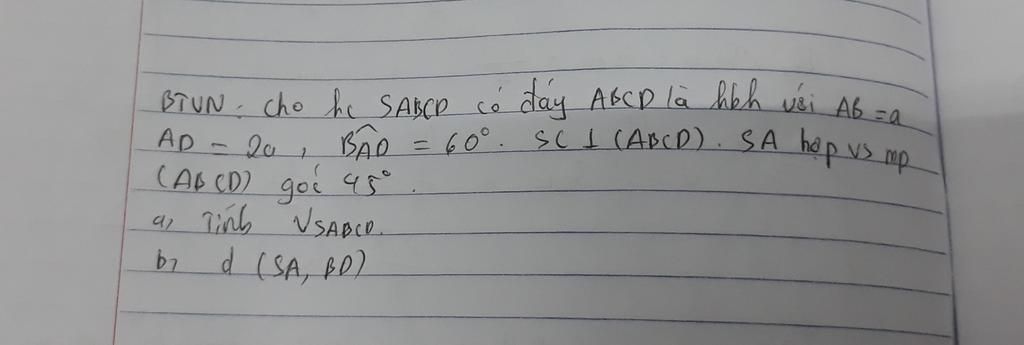 BTVN: cho hc SABCD có đáy ABCD là hbh với AB = a
AD = 2a, BAD = 60°. SC ⊥ (ABCD). SA hợp vs mp
(ABCD) góc 45°.
a, Tính VSABCD.
b, d (SA, BD)